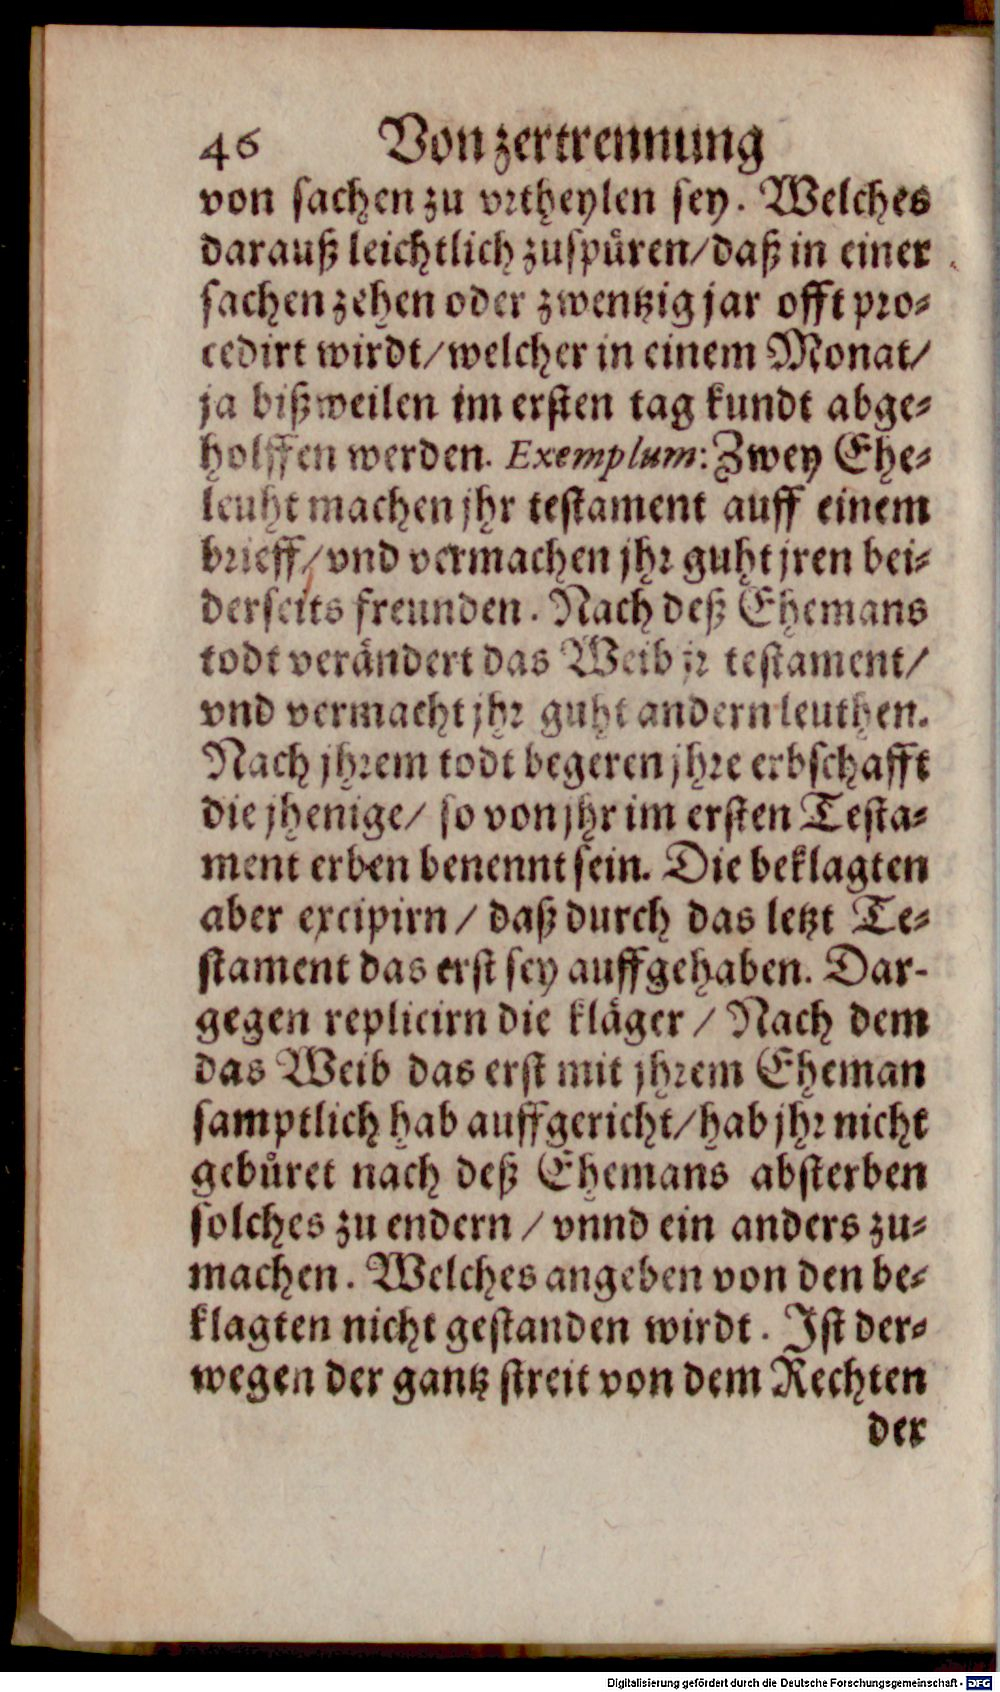 46 Von zertrennung
von sachen zu vrtheylen sey. Welches
darauß leichtlich zuspüren/daß in einer
sachen zehen oder zwentzig jar offt pro-
cedirt wirdt/welcher in einem Monat/
ja bißweilen im ersten tag kundt abge-
holffen werden. Exemplum: Zwey Ehe-
leuht machen jhr testament auff einem
brieff/vnd vermachen jhr guht jren bei-
derseits freunden. Nach deß Ehemans
todt verändert das Weib jr testament/
vnd vermacht jhr guht andern leuthen.
Nach jhrem todt begeren jhre erbschafft
die jhenige/ so von jhr im ersten Testa-
ment erben benennt sein. Die beklagten
aber excipirn / daß durch das letzt Te-
stament das erst sey auffgehaben. Dar-
gegen replicirn die kläger / Nach dem
das Weib das erst mit jhrem Eheman
samptlich hab auffgericht/hab jhr nicht
gebüret nach deß Ehemans absterben
solches zu endern / vnnd ein anders zu-
machen. Welches angeben von den be-
klagten nicht gestanden wirdt. Ist der-
wegen der gantz streit von dem Rechten
der
Digitalisierung gefördert durch die Deutsche Forschungsgemeinschaft - DFG